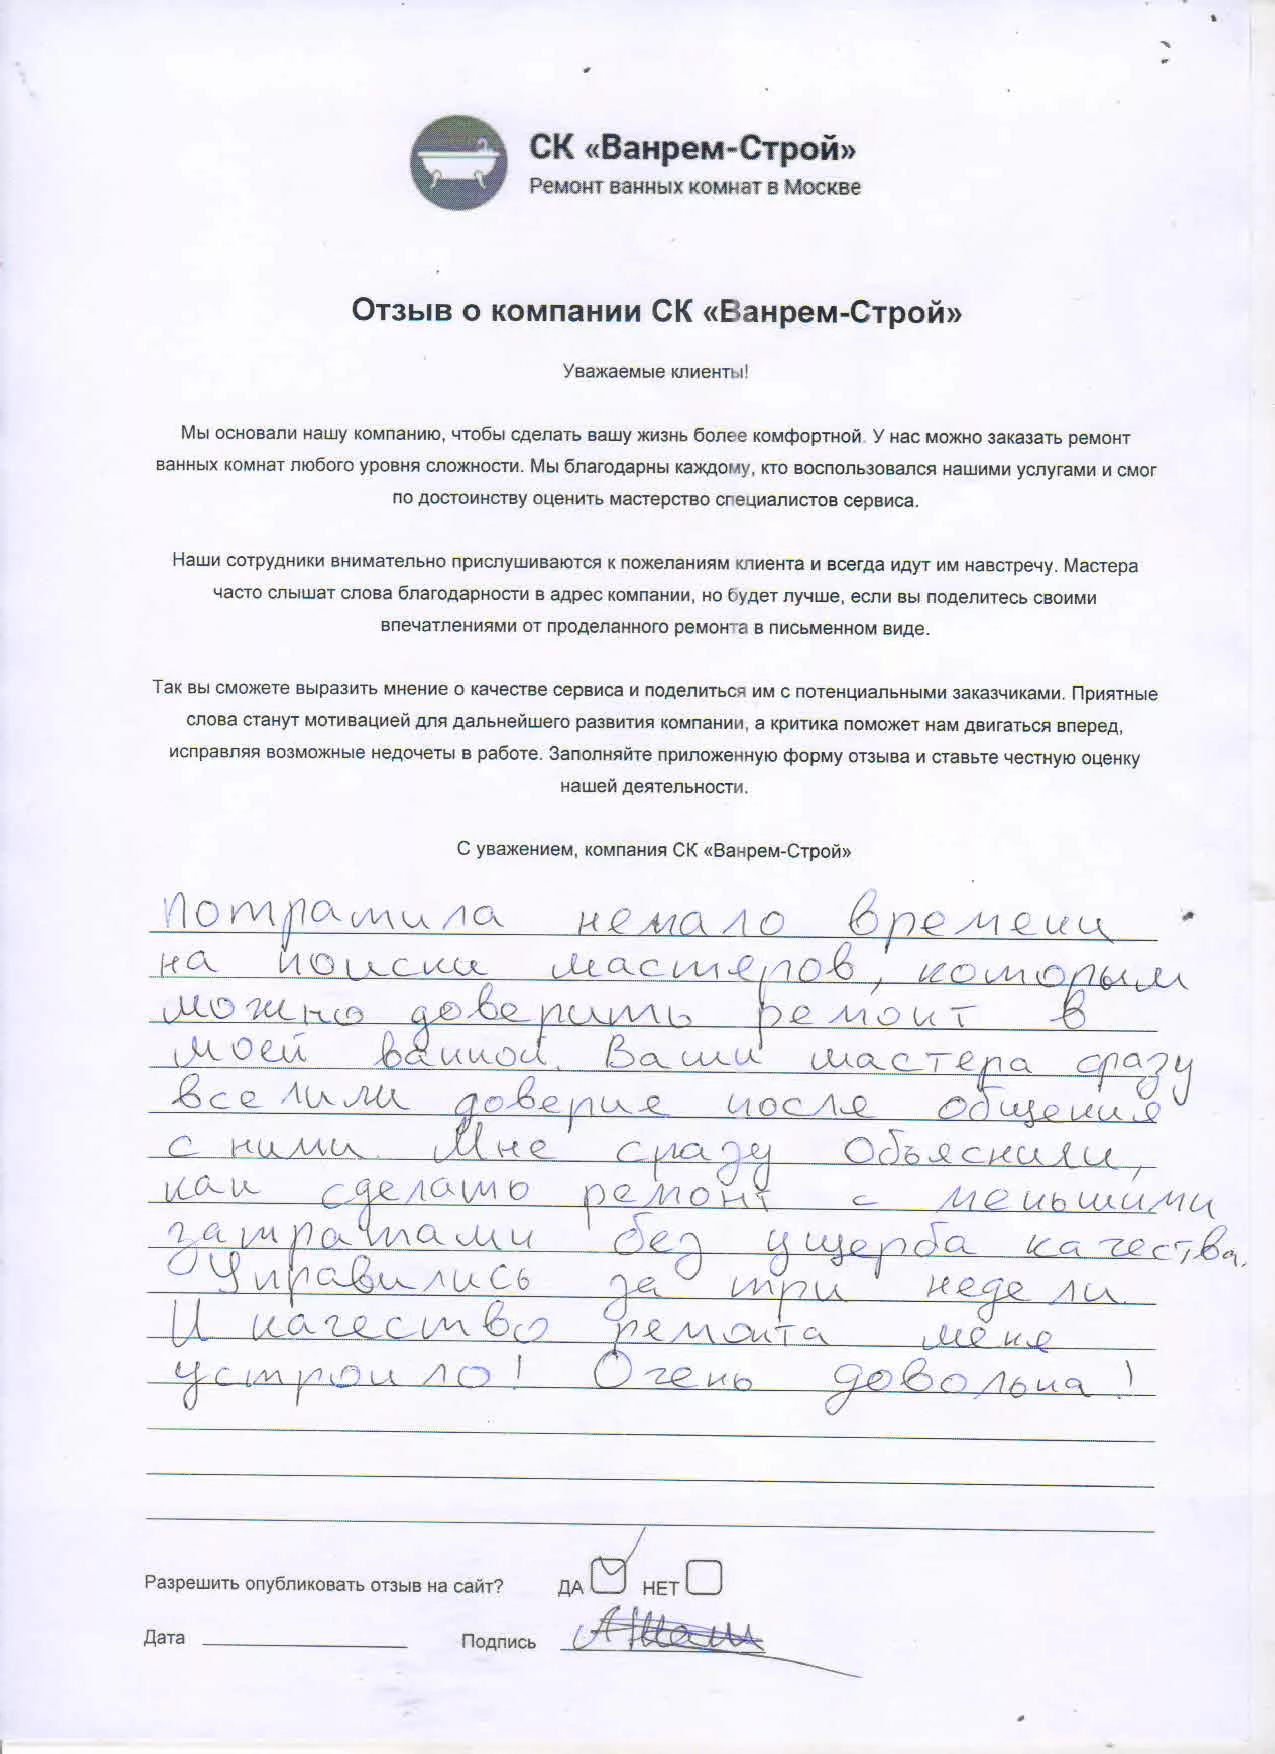 СК «Ванрем-Строй»
Ремонт ванных комнат в Москве
Отзыв о компании СК «Ванрем-Строй»
Уважаемые клиенты!
Мы основали нашу компанию, чтобы сделать вашу жизнь более комфортной. У нас можно заказать ремонт
ванных комнат любого уровня сложности. Мы благодарны каждому, кто воспользовался нашими услугами и смог
по достоинству оценить мастерство специалистов сервиса.
Наши сотрудники внимательно прислушиваются к пожеланиям клиента и всегда идут им навстречу. Мастера
часто слышат слова благодарности в адрес компании, но будет лучше, если вы поделитесь своими
впечатлениями от проделанного ремонта в письменном виде.
Так вы сможете выразить мнение о качестве сервиса и поделиться им с потенциальными заказчиками. Приятные
слова станут мотивацией для дальнейшего развития компании, а критика поможет нам двигаться вперед,
исправляя возможные недочеты в работе. Заполняйте приложенную форму отзыва и ставьте честную оценку
нашей деятельности.
С уважением, компания СК «Ванрем-Строй»
Потратила немало времени
на поиски мастеров, которым
можно доверить ремонт в
моей ванной. Ваши мастера сразу
вселили доверие после общения
с ними. Мне сразу объяснили,
как сделать ремонт с меньшими
затратами без ущерба качества.
Управились за три недели.
И качество ремонта меня
устроило! Очень довольна!
Разрешить опубликовать отзыв на сайт? ДА НЕТ
Дата Подпись